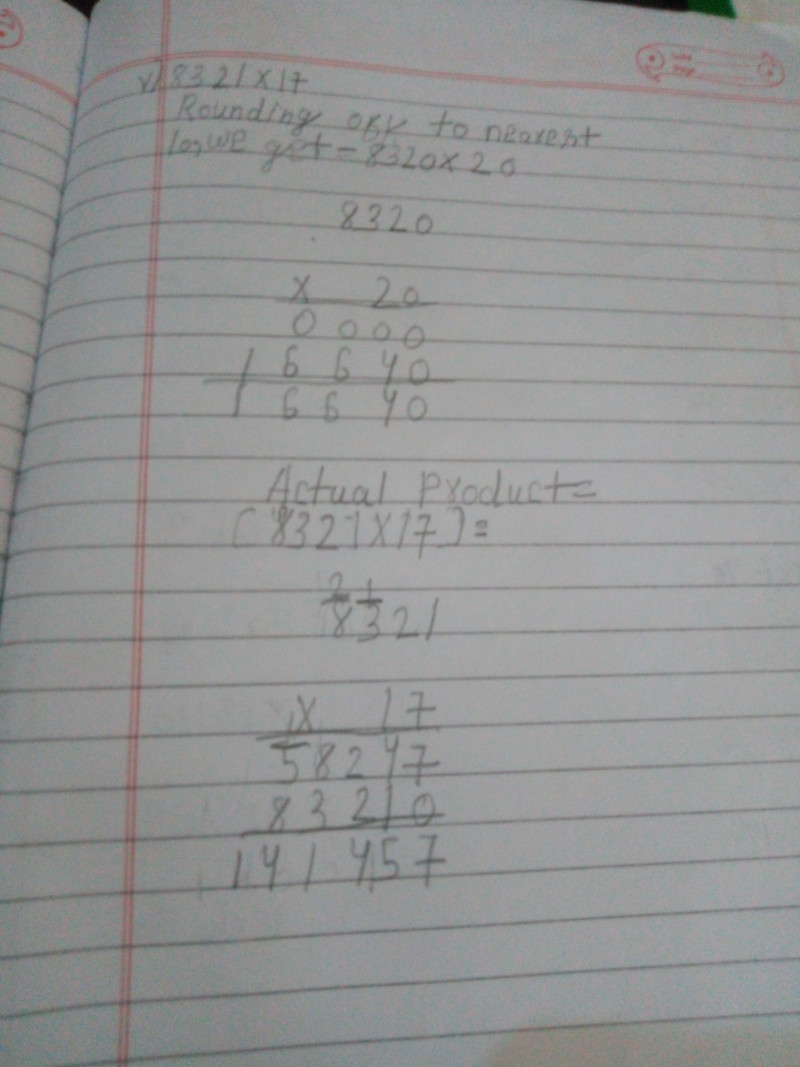 v) 8321×17
Rounding off to nearest
10, we get - 8320×20
8320
× 20
0000
16640
16640
Actual Product =
(8321×17) =
2 1
8321
× 17
58247
83210
141457